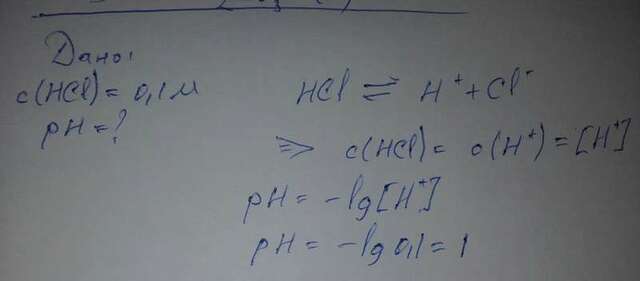 Дано:
c(HCl) = 0,1 M
pH = ?
HCl ⇌ H⁺ + Cl⁻
⇒ c(HCl) = c(H⁺) = [H⁺]
pH = -lg[H⁺]
pH = -lg 0,1 = 1